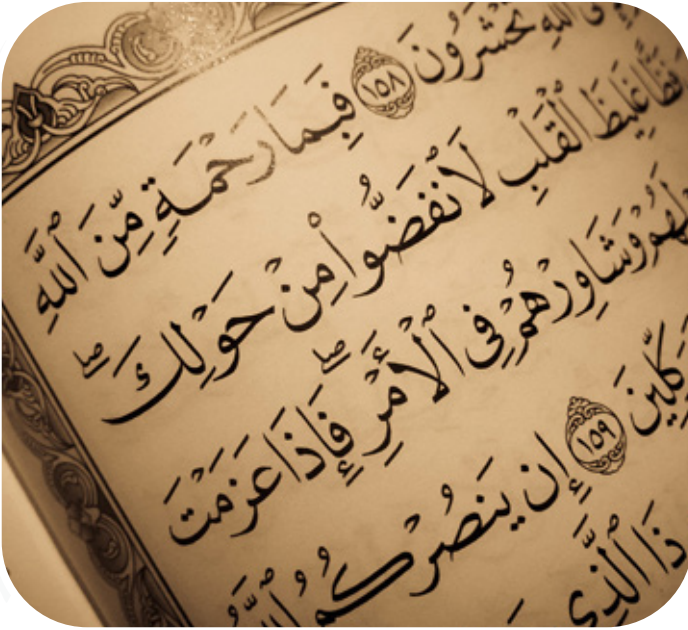 ٱللَّهِ تُحْشَرُونَ ١٥٨ فَبِمَا رَحْمَةٍ مِّنَ ٱللَّهِ
فَظًّا غَلِيظَ ٱلْقَلْبِ لَٱنفَضُّوا۟ مِنْ حَوْلِكَ ۖ
لَهُمْ وَشَاوِرْهُمْ فِى ٱلْأَمْرِ ۖ فَإِذَا عَزَمْتَ
كِّلِينَ ١٥٩ إِن يَنصُرْكُمُ ٱللَّهُ
ذَا ٱلَّذِى